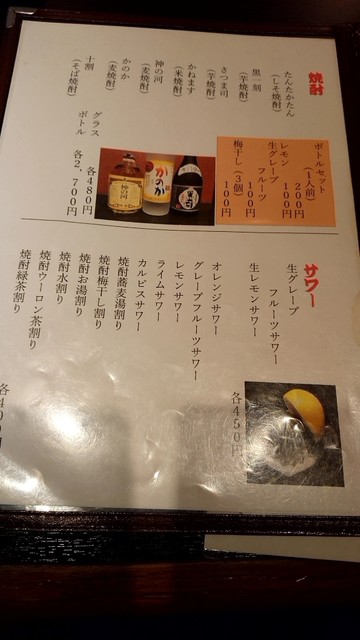 焼酎
たんたかたん
(しそ焼酎)
黒一刻
(芋焼酎)
さつま司
(芋焼酎)
かねます
(米焼酎)
神の河
(麦焼酎)
かのか
(麦焼酎)
十割
(そば焼酎)
グラス 各480円
ボトル 各2,700円
ボトルセット
(1人前) 200円
レモン 100円
生グレープ
フルーツ 100円
梅干し(3個) 100円
神の河
かのか
サワー
生グレープ
フルーツサワー
生レモンサワー
各450円
オレンジサワー
グレープフルーツサワー
レモンサワー
ライムサワー
カルピスサワー
焼酎蕎麦湯割り
焼酎梅干し割り
焼酎お湯割り
焼酎水割り
焼酎ウーロン茶割り
焼酎緑茶割り
各400円